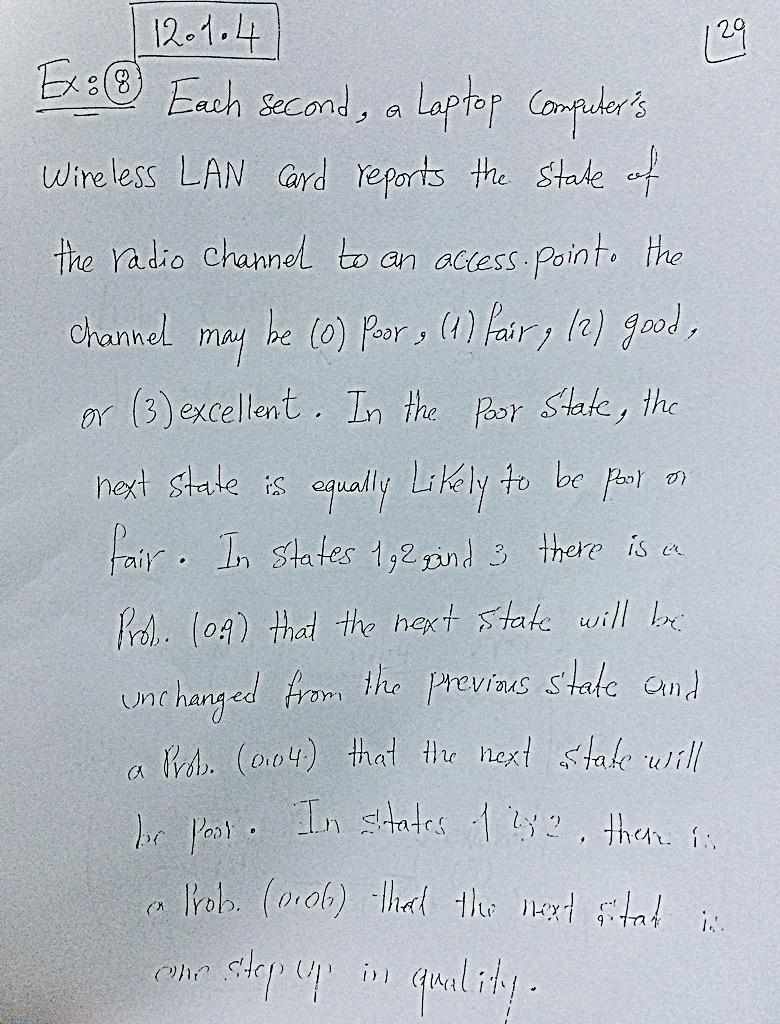 12.1.4
29
Ex: 8 Each second, a Laptop Computer's
Wireless LAN Card reports the state of
the radio channel to an access point. the
channel may be (0) poor, (1) fair, (2) good,
or (3) excellent. In the poor state, the
next state is equally Likely to be poor or
fair. In states 1,2 and 3 there is a
Prob. (0.9) that the next state will be
unchanged from the previous state and
a Prob. (0.04) that the next state will
be poor. In states 1 & 2, there is
a Prob. (0.06) that the next stat is
one step up in quality.